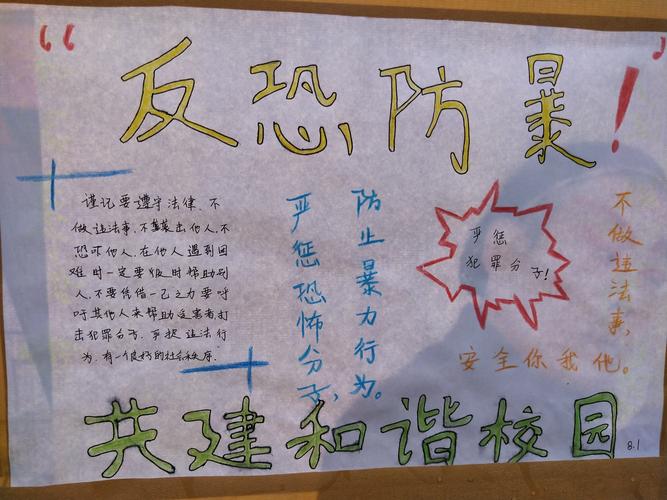 “反恐防暴！”
谨记要遵守法律、不
做违法事，不
出他人，不
恐吓他人，在他人遇到困
难时一定要及时帮助别
人，不要凭借一己之力要呼
吁其他人来帮助受害者打
击犯罪分子，
违法行
为，有一个良好的社会秩序.
严惩恐怖分子，
防止暴力行为。
严惩
犯罪分子！
不做违法事，
安全你我他。
共建和谐校园
8.1